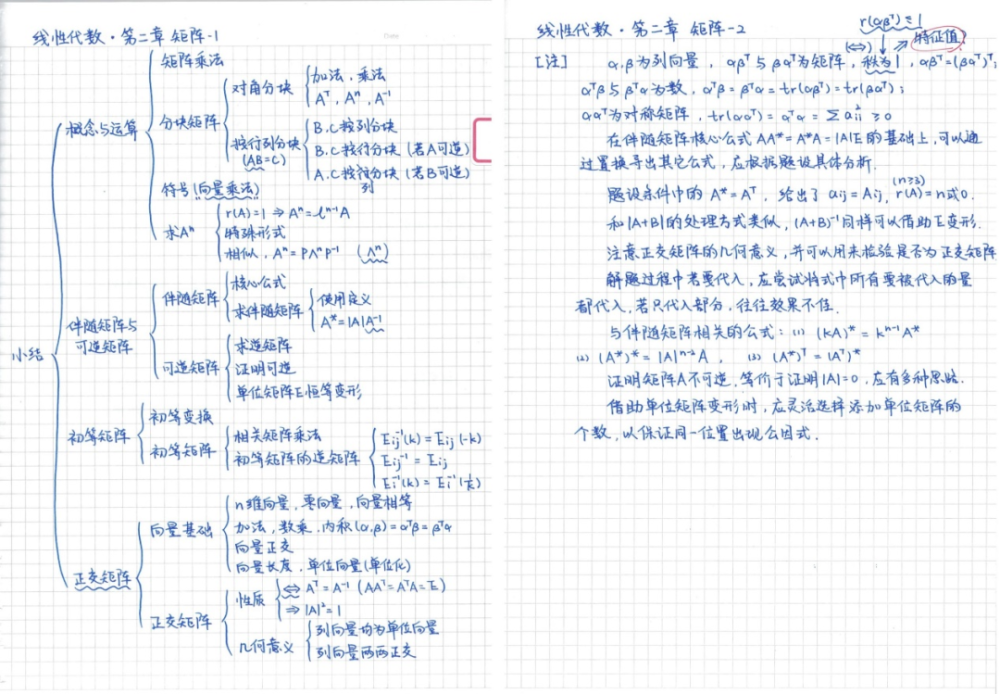 线性代数·第二章 矩阵-1
Date
小结
概念与运算
矩阵乘法
分块矩阵
对角分块
加法，乘法
Aᵀ, Aⁿ, A⁻¹
按行列分块
(AB=C)
B.C按列分块
B.C按行分块（若A可逆）
A.C按行分块（若B可逆）
列
符号(向量乘法)
求Aⁿ
r(A)=1 ⇒ Aⁿ=lⁿ⁻¹A
特殊形式
相似，Aⁿ=PΛⁿP⁻¹ (Λⁿ)
伴随矩阵与
可逆矩阵
伴随矩阵
核心公式
求伴随矩阵
使用定义
A*=|A|A⁻¹
可逆矩阵
求逆矩阵
证明可逆
单位矩阵E恒等变形
初等矩阵
初等变换
初等矩阵
相关矩阵乘法
初等矩阵的逆矩阵
Eij⁻¹(k)=Eij(-k)
Eij⁻¹=Eij
Ei⁻¹(k)=Ei⁻¹(1/k)
正交矩阵
向量基础
n维向量，零向量，向量相等
加法，数乘，内积(α,β)=αᵀβ=βᵀα
向量正交
向量长度，单位向量(单位化)
正交矩阵
性质
⇔ Aᵀ=A⁻¹ (AAᵀ=AᵀA=E)
⇒ |A|²=1
几何意义
列向量均为单位向量
列向量两两正交
线性代数·第二章 矩阵-2
r(αβᵀ)≤1
(⇔) 特征值
[注] α,β为列向量，αβᵀ与βαᵀ为矩阵，秩为1，αβᵀ=(βαᵀ)ᵀ;
αᵀβ与βᵀα为数，αᵀβ=βᵀα=tr(αβᵀ)=tr(βαᵀ);
ααᵀ为对称矩阵，tr(ααᵀ)=αᵀα=Σai²≥0
在伴随矩阵核心公式AA*=A*A=|A|E的基础上，可以通
过置换导出其它公式，应根据题设具体分析.
(n≥3)
题设条件中的A*=Aᵀ，给出了aij=Aij, r(A)=n或0.
和|A+B|的处理方式类似，(A+B)⁻¹同样可以借助E变形.
注意正交矩阵的几何意义，并可以用来检验是否为正交矩阵
解题过程中若要代入，应尝试将式中所有要被代入的量
都代入，若只代入部分，往往效果不佳.
与伴随矩阵相关的公式：(1) (kA)*=kⁿ⁻¹A*
(2) (A*)*=|A|ⁿ⁻²A， (3) (A*)ᵀ=(Aᵀ)*
证明矩阵A不可逆，等价于证明|A|=0，应有多种思路.
借助单位矩阵变形时，应灵活选择添加单位矩阵的
个数，以保证同一位置出现公因式.